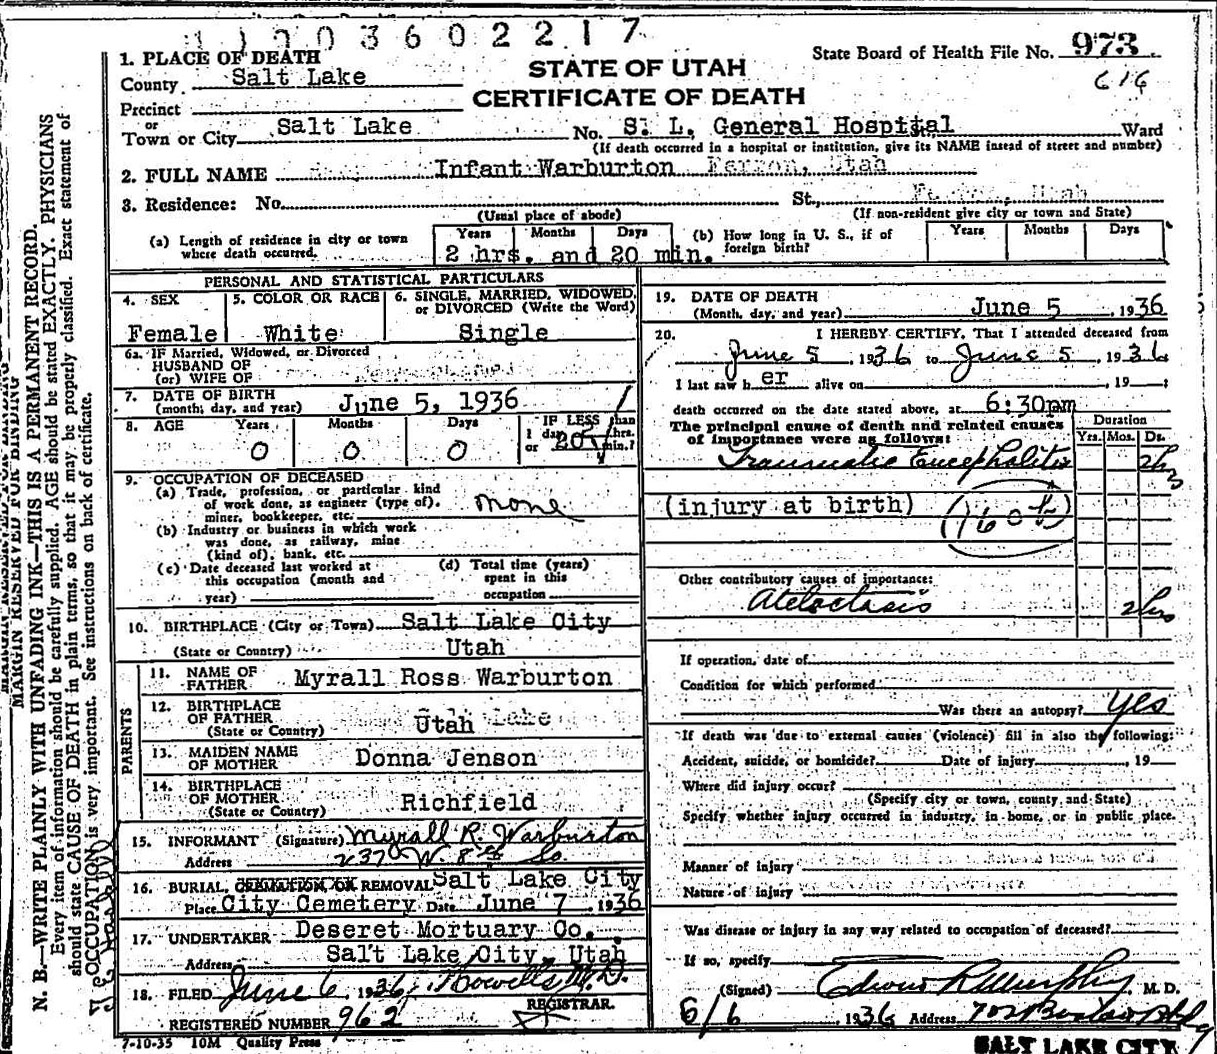 1 1 0 0 3 6 0 2 2 1 7
State Board of Health File No. 973
616
STATE OF UTAH
CERTIFICATE OF DEATH
1. PLACE OF DEATH
County Salt Lake
Precinct
or
Town or City Salt Lake No. S. L. General Hospital Ward
(If death occurred in a hospital or institution, give its NAME instead of street and number)
2. FULL NAME Infant Warburton Ferron, Utah
3. Residence: No. St., Utah
(Usual place of abode) (If non-resident give city or town and State)
(a) Length of residence in city or town where death occurred. Years Months Days 2 hrs. and 20 min.
(b) How long in U. S., if of foreign birth? Years Months Days
PERSONAL AND STATISTICAL PARTICULARS
4. SEX 5. COLOR OR RACE 6. SINGLE, MARRIED, WIDOWED, or DIVORCED (Write the Word)
Female White Single
6a. IF Married, Widowed, or Divorced
HUSBAND OF
(or) WIFE OF
7. DATE OF BIRTH
(month, day, and year) June 5, 1936
8. AGE Years Months Days IF LESS than
1 day hrs.
or min.?
0 0 0 20
9. OCCUPATION OF DECEASED
(a) Trade, profession, or particular kind
of work done, as engineer (type of),
miner, bookkeeper, etc. none
(b) Industry or business in which work
was done, as railway, mine
(kind of), bank, etc.
(c) Date deceased last worked at
this occupation (month and
year)
(d) Total time (years)
spent in this
occupation
10. BIRTHPLACE (City or Town) Salt Lake City
(State or Country) Utah
PARENTS
11. NAME OF
FATHER Myrall Ross Warburton
12. BIRTHPLACE
OF FATHER Utah Lake
(State or Country)
13. MAIDEN NAME
OF MOTHER Donna Jenson
14. BIRTHPLACE
OF MOTHER Richfield
(State or Country)
15. INFORMANT (Signature) Myrall R. Warburton
Address 237 W. 8th So
16. BURIAL, CREMATION, OR REMOVAL Salt Lake City
Place City Cemetery Date June 7, 1936
17. UNDERTAKER Deseret Mortuary Co.
Address Salt Lake City, Utah
18. FILED June 6, 1936 Howells M.D.
REGISTRAR.
REGISTERED NUMBER 962
7-10-35 10M Quality Press
19. DATE OF DEATH
(Month, day, and year) June 5, 1936
20. I HEREBY CERTIFY, That I attended deceased from
June 5, 1936 to June 5, 1936
I last saw her alive on , 19 ;
death occurred on the date stated above, at 6:30pm
The principal cause of death and related causes
of importance were as follows:
Duration
Yrs. Mos. Ds.
Traumatic Encephalitis 2hrs
(injury at birth) (160 )
Other contributory causes of importance:
Atelectasis 2 hrs
If operation, date of
Condition for which performed
Was there an autopsy? yes
If death was due to external causes (violence) fill in also the following:
Accident, suicide, or homicide? Date of injury , 19
Where did injury occur?
(Specify city or town, county, and State)
Specify whether injury occurred in industry, in home, or in public place.
Manner of injury
Nature of injury
Was disease or injury in any way related to occupation of deceased?
If so, specify
(Signed) M. D.
6/6, 1936 Address Boston Bldg
SALT LAKE CITY
MARGIN RESERVED FOR BINDING
N. B.—WRITE PLAINLY WITH UNFADING INK—THIS IS A PERMANENT RECORD.
Every item of information should be carefully supplied. AGE should be stated EXACTLY. PHYSICIANS
should state CAUSE OF DEATH in plain terms, so that it may be properly classified. Exact statement of
OCCUPATION is very important. See instructions on back of certificate.